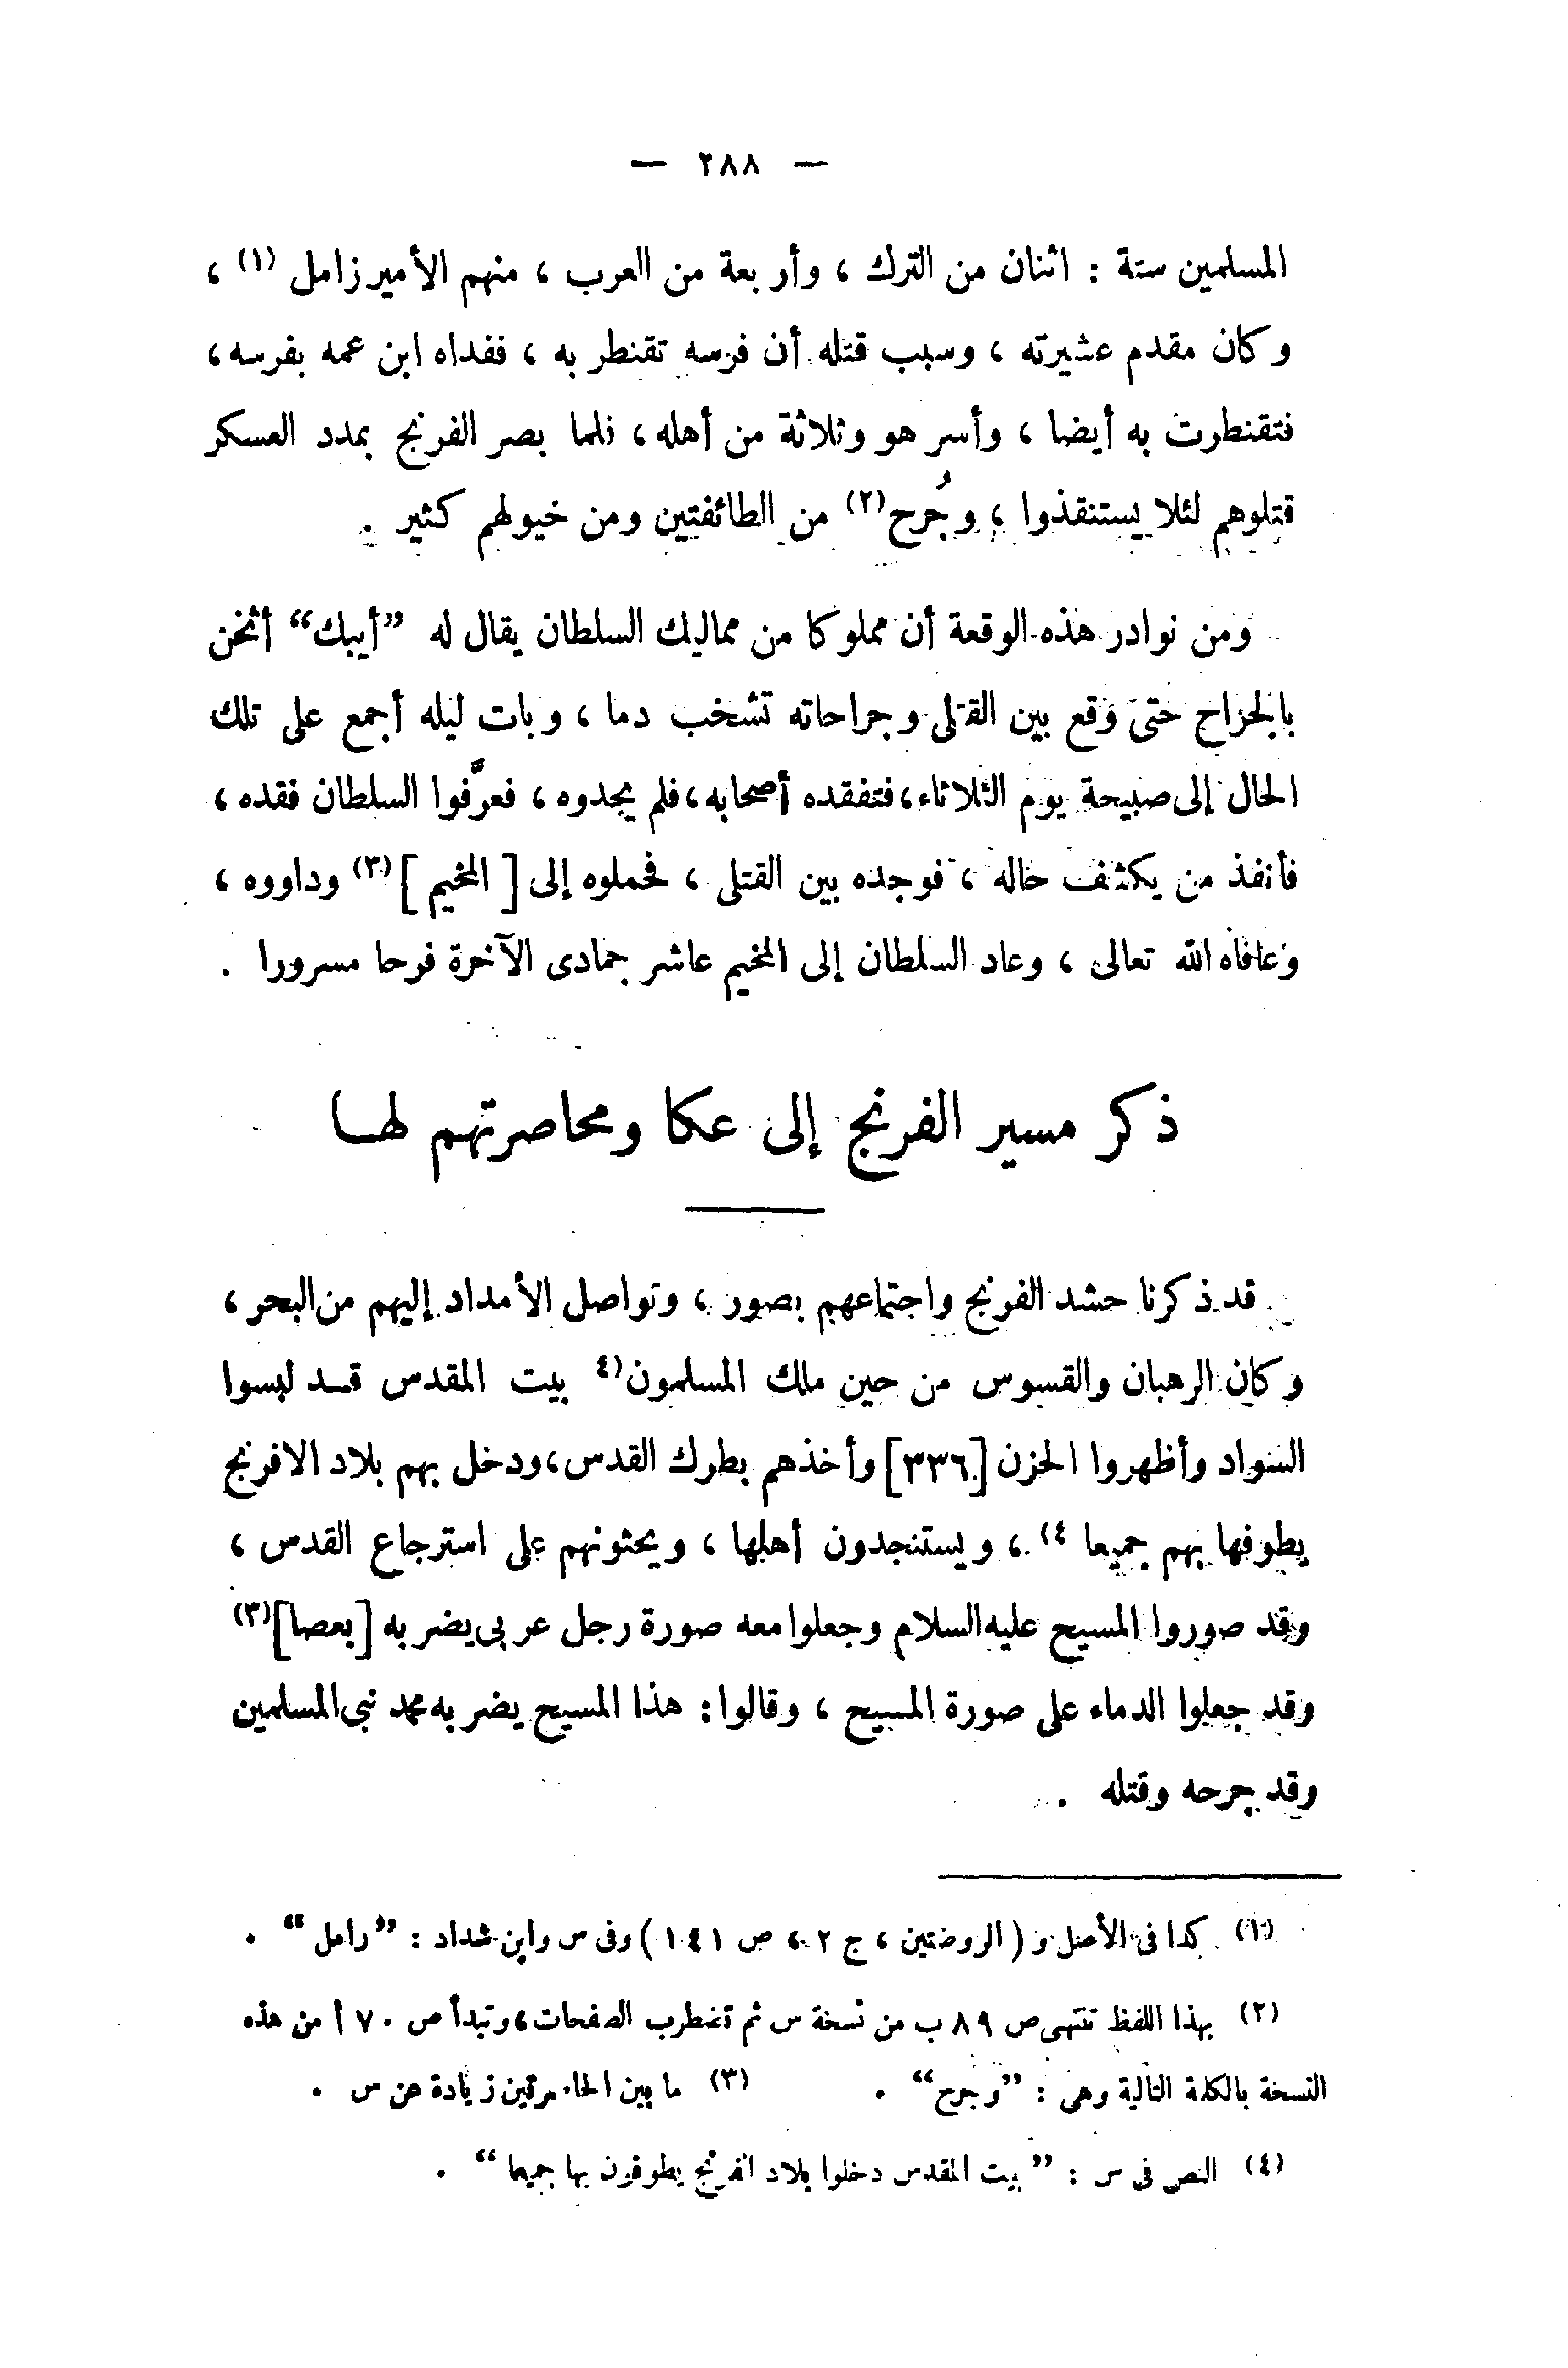 — ٢٨٨ —
المسلمين ستة : اثنان من الترك ، وأربعة من العرب ، منهم الأمير زامل (١) ،
وكان مقدم عشيرته ، وسبب قتله أن فرسه تقنطر به ، ففداه ابن عمه بفرسه ،
فتقنطرت به أيضا ، وأسر هو وثلاثة من أهله ، فلما بصر الفرنج بمدد العسكر
قتلوهم لئلا يستنقذوا ، وجُرح (٢) من الطائفتين ومن خيولهم كثير .
ومن نوادر هذه الوقعة أن مملوكا من مماليك السلطان يقال له ”أيبك“ أثخن
بالجراح حتى وقع بين القتلى وجراحاته تشخب دما ، وبات ليله أجمع على تلك
الحال إلى صبيحة يوم الثلاثاء ، فتفقده أصحابه ، فلم يجدوه ، فعرَّفوا السلطان فقده ،
فأنفذ من يكشف حاله ، فوجده بين القتلى ، فحملوه إلى [ المخيم ] (٣) وداووه ،
وعافاه الله تعالى ، وعاد السلطان إلى المخيم عاشر جمادى الآخرة فرحا مسرورا .
ذكر مسير الفرنج إلى عكا ومحاصرتهم لهـا
قد ذكرنا حشد الفرنج واجتماعهم بصور ، وتواصل الأمداد إليهم من البحر ،
وكان الرهبان والقسوس من حين ملك المسلمون (٤ بيت المقدس قـد لبسوا
السواد وأظهروا الحزن [٣٣٦] وأخذهم بطرك القدس ، ودخل بهم بلاد الافرنج
يطوفها بهم جميعا ٤) ، ويستنجدون أهلها ، ويحثونهم على استرجاع القدس ،
وقد صوروا المسيح عليه السلام وجعلوا معه صورة رجل عربى يضربه [بعصا] (٣)
وقد جعلوا الدماء على صورة المسيح ، وقالوا : هذا المسيح يضربه محمد نبى المسلمين
وقد جرحه وقتله .
(١) كذا فى الأصل و ( الروضتين ، ج ٢ ، ص ١٤١ ) وفى س وابن شداد : ”رامل“ .
(٢) بهذا اللفظ تنتهى ص ٨٩ ب من نسخة س ثم تضطرب الصفحات ، وتبدأ ص ٧٠ أ من هذه
النسخة بالكلمة التالية وهى : ”وجرح“ . (٣) ما بين الحاصرتين زيادة عن س .
(٤) النص فى س : ”بيت المقدس دخلوا بلاد الفرنج يطوفون بها جميعا“ .